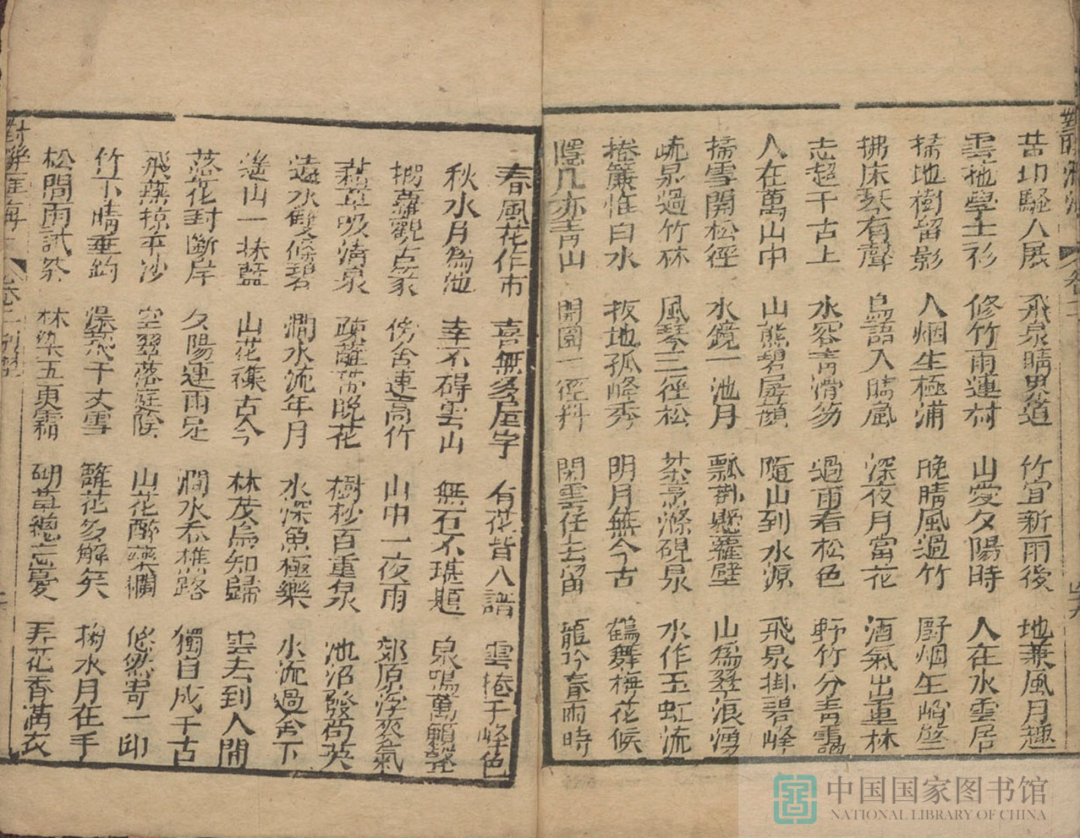 苔切騷人展　飛泉晴男道　竹宜新雨後　地兼風月趣
雲摇學士衫　修竹雨連村　山愛夕陽時　人在水雲居
掃地樹留影　人烟生極浦　晚晴風過竹　厨烟生峭壁
拂床琴有聲　鳥語入晴風　深夜月當花　酒氣出重林
志超千古上　水容青滑笏　過雨看松色　野竹分青靄
人在萬山中　山態碧屠顔　隨山到水源　飛泉掛碧峰
掃雪開松徑　水鏡一池月　瓢　懸蘿壁　山為翠浪湧
疏泉過竹林　風琴三徑松　茶　滌硯泉　水作玉虹流
捲簾惟白水　拔地孤峰秀　明月無今古　鶴舞梅花候
隱几亦青山　開園一徑斜　閑雲任去留　龍吟春雨時
春風花作市　喜無多屋宇　有花皆入譜　雲捲千峰色
秋水月為池　幸不碍雲山　無石不琪題　泉鳴萬籟
　蘿觀古篆　傍舍連高竹　山中一夜雨　郊原浮爽氣
　　吸清泉　疎籬帶晚花　樹杪百重泉　池沼發荀英
遠水雙條碧　澗水流年月　水深魚極樂　水流過舍下
遙山一抹藍　山花襍古今　林茂鳥知歸　雲去到人間
落花封斷岸　夕陽連雨足　澗水吞樵路　獨自成千古
飛燕掠平沙　空翠落庭陰　山花醉藥欄　悠然寄一邱
竹下晴垂釣　瀑飛千丈雪　籬花多解笑　掬水月在手
松間雨試祭　林染五更霜　砌草總忘憂　弄花香滿衣
中国国家图书馆
NATIONAL LIBRARY OF CHINA